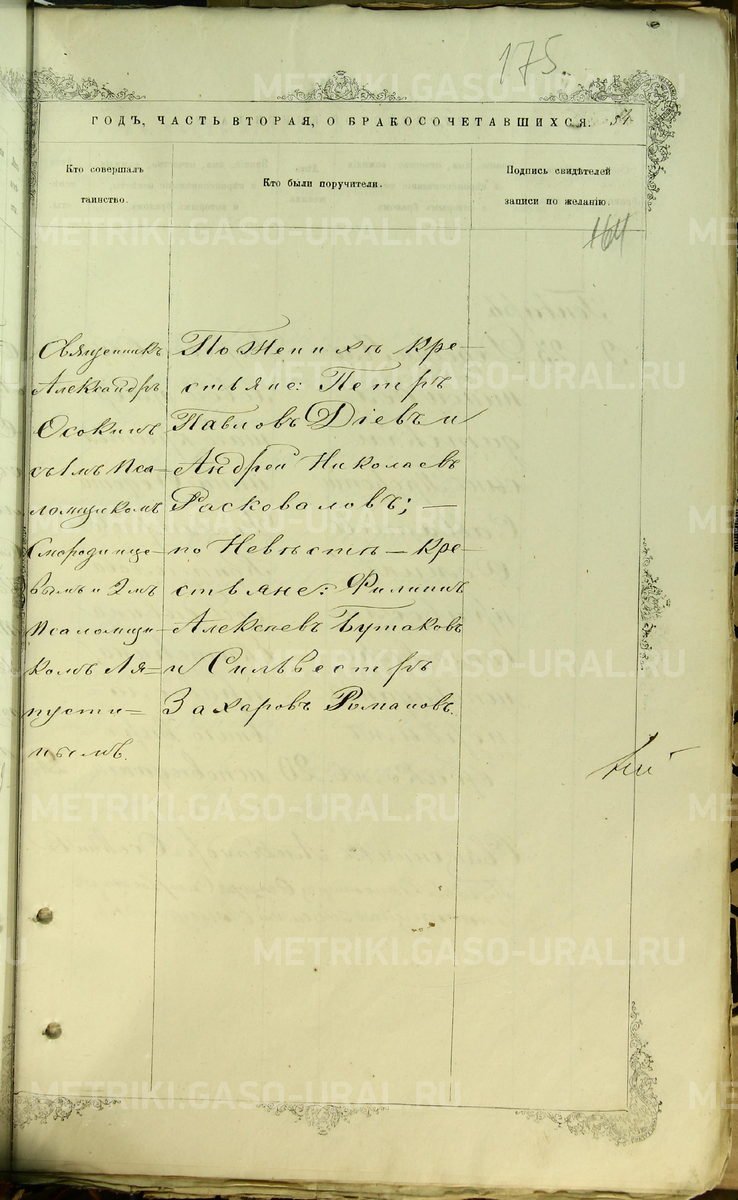 175.
ГОДЪ, ЧАСТЬ ВТОРАЯ, О БРАКОСОЧЕТАВШИХСЯ. 54
Кто совершалъ
таинство.
Кто были поручители.
Подпись свидѣтелей
записи по желанію.
164
Священникъ
Александръ
Осокинъ
съ 1мъ Пса-
ломщикомъ
Смородинце-
вымъ и 2мъ
Псаломщи-
комъ Ля-
пусти-
нымъ.
По Женихѣ кре-
стьяне: Петръ
Павловъ Діевъ и
Андрей Николаевъ
Расковаловъ; —
по Невѣстѣ — кре-
стьяне: Филиппъ
Алексѣевъ Бутаковъ
и Сильвестръ
Захаровъ Романовъ.
METRIKI.GASO-URAL.RU